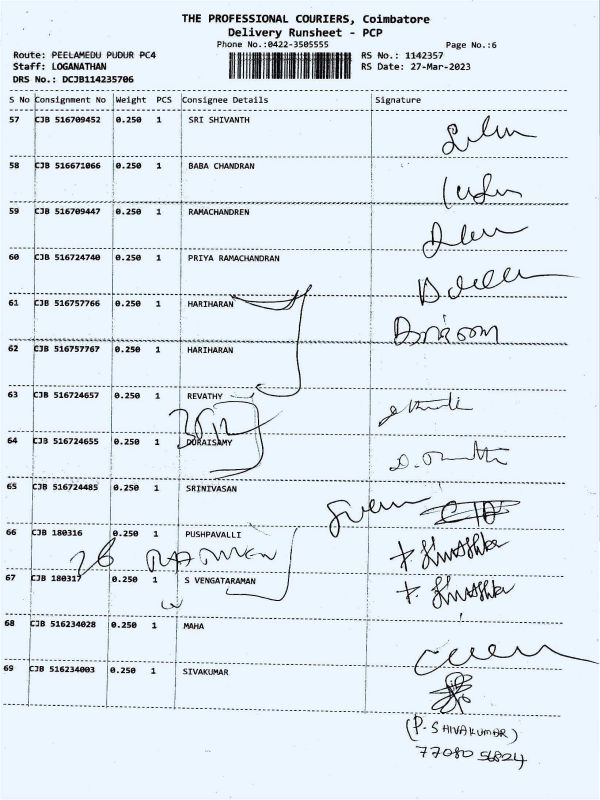 THE PROFESSIONAL COURIERS, Coimbatore
Delivery Runsheet - PCP
Phone No.:0422-3505555 Page No.:6
Route: PEELAMEDU PUDUR PC4 RS No.: 1142357
Staff: LOGANATHAN RS Date: 27-Mar-2023
DRS No.: DCJB114235706
S No Consignment No Weight PCS Consignee Details Signature
57 CJB 516709452 0.250 1 SRI SHIVANTH
58 CJB 516671066 0.250 1 BABA CHANDRAN
59 CJB 516709447 0.250 1 RAMACHANDREN
60 CJB 516724740 0.250 1 PRIYA RAMACHANDRAN
61 CJB 516757766 0.250 1 HARIHARAN
62 CJB 516757767 0.250 1 HARIHARAN
63 CJB 516724657 0.250 1 REVATHY
64 CJB 516724655 0.250 1 DORAISAMY
65 CJB 516724485 0.250 1 SRINIVASAN
66 CJB 180316 0.250 1 PUSHPAVALLI
67 CJB 180317 0.250 1 S VENGATARAMAN
68 CJB 516234028 0.250 1 MAHA
69 CJB 516234003 0.250 1 SIVAKUMAR
(P. SHIVAKUMAR)